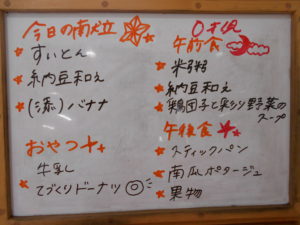 今日の献立
すいとん
納豆和え
(添)バナナ
おやつ
牛乳
てづくりドーナツ
0才児
午前食
米粥
納豆和え
鶏団子と彩り野菜の
スープ
午後食
スティックパン
南瓜ポタージュ
果物